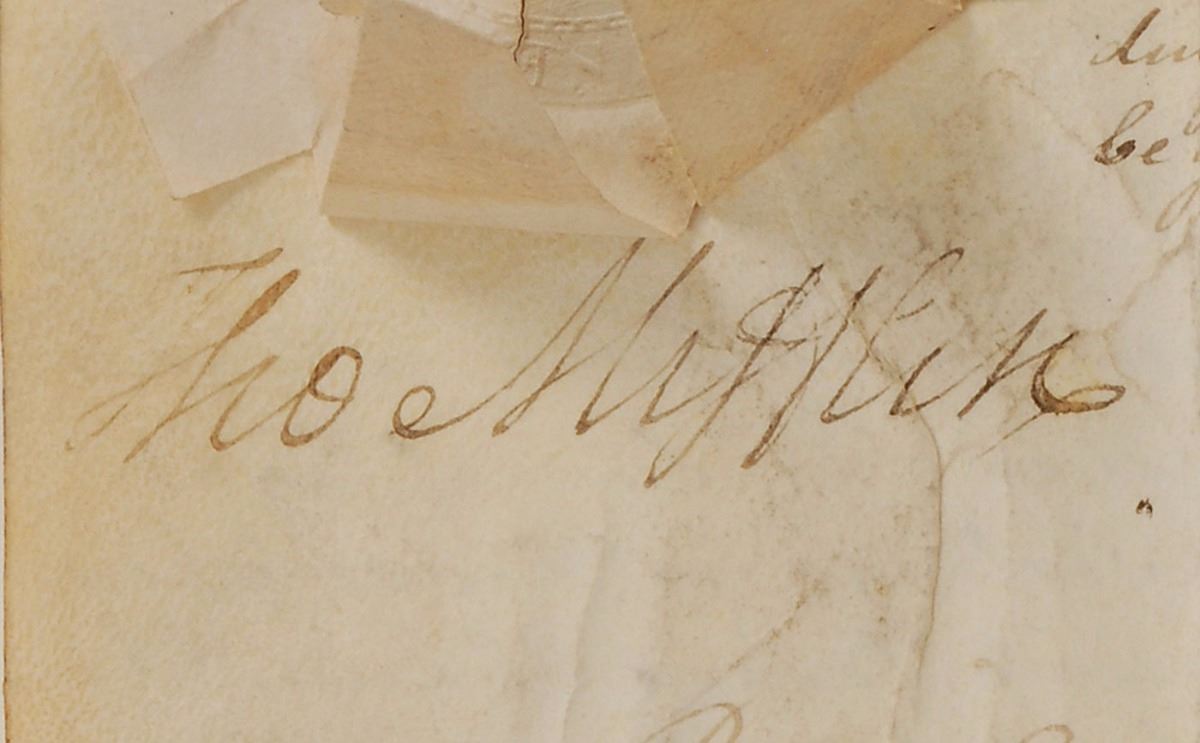 be
Tho Mifflin